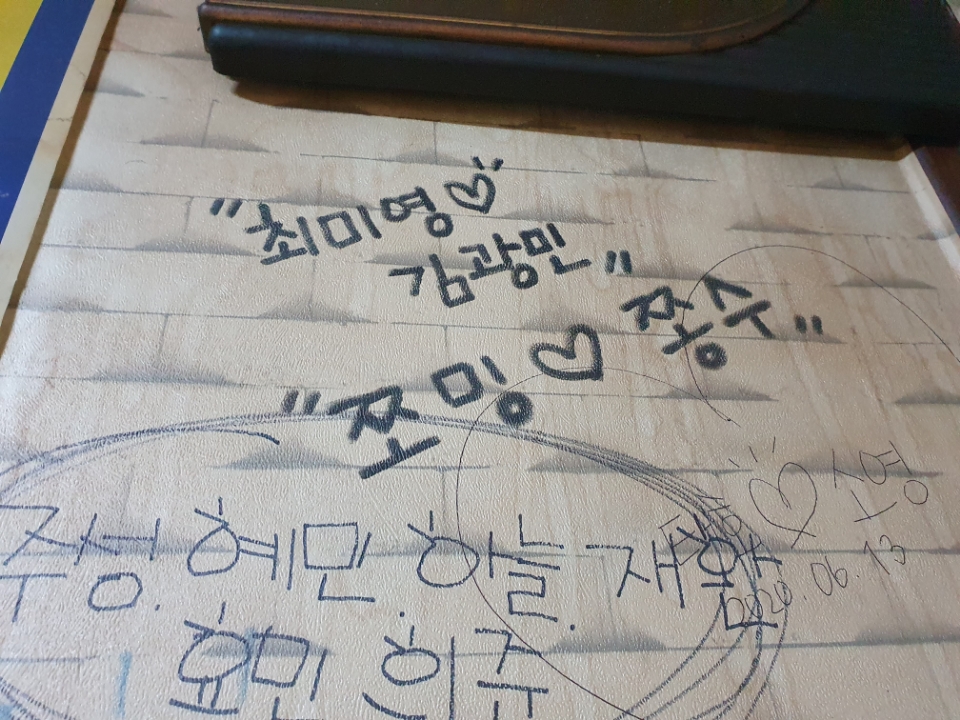 "최미영♡
김광민"
"조밍♡쫑수"
♡ 수영
2020.06.13
주성.혜민.하늘.재환
효민 희주